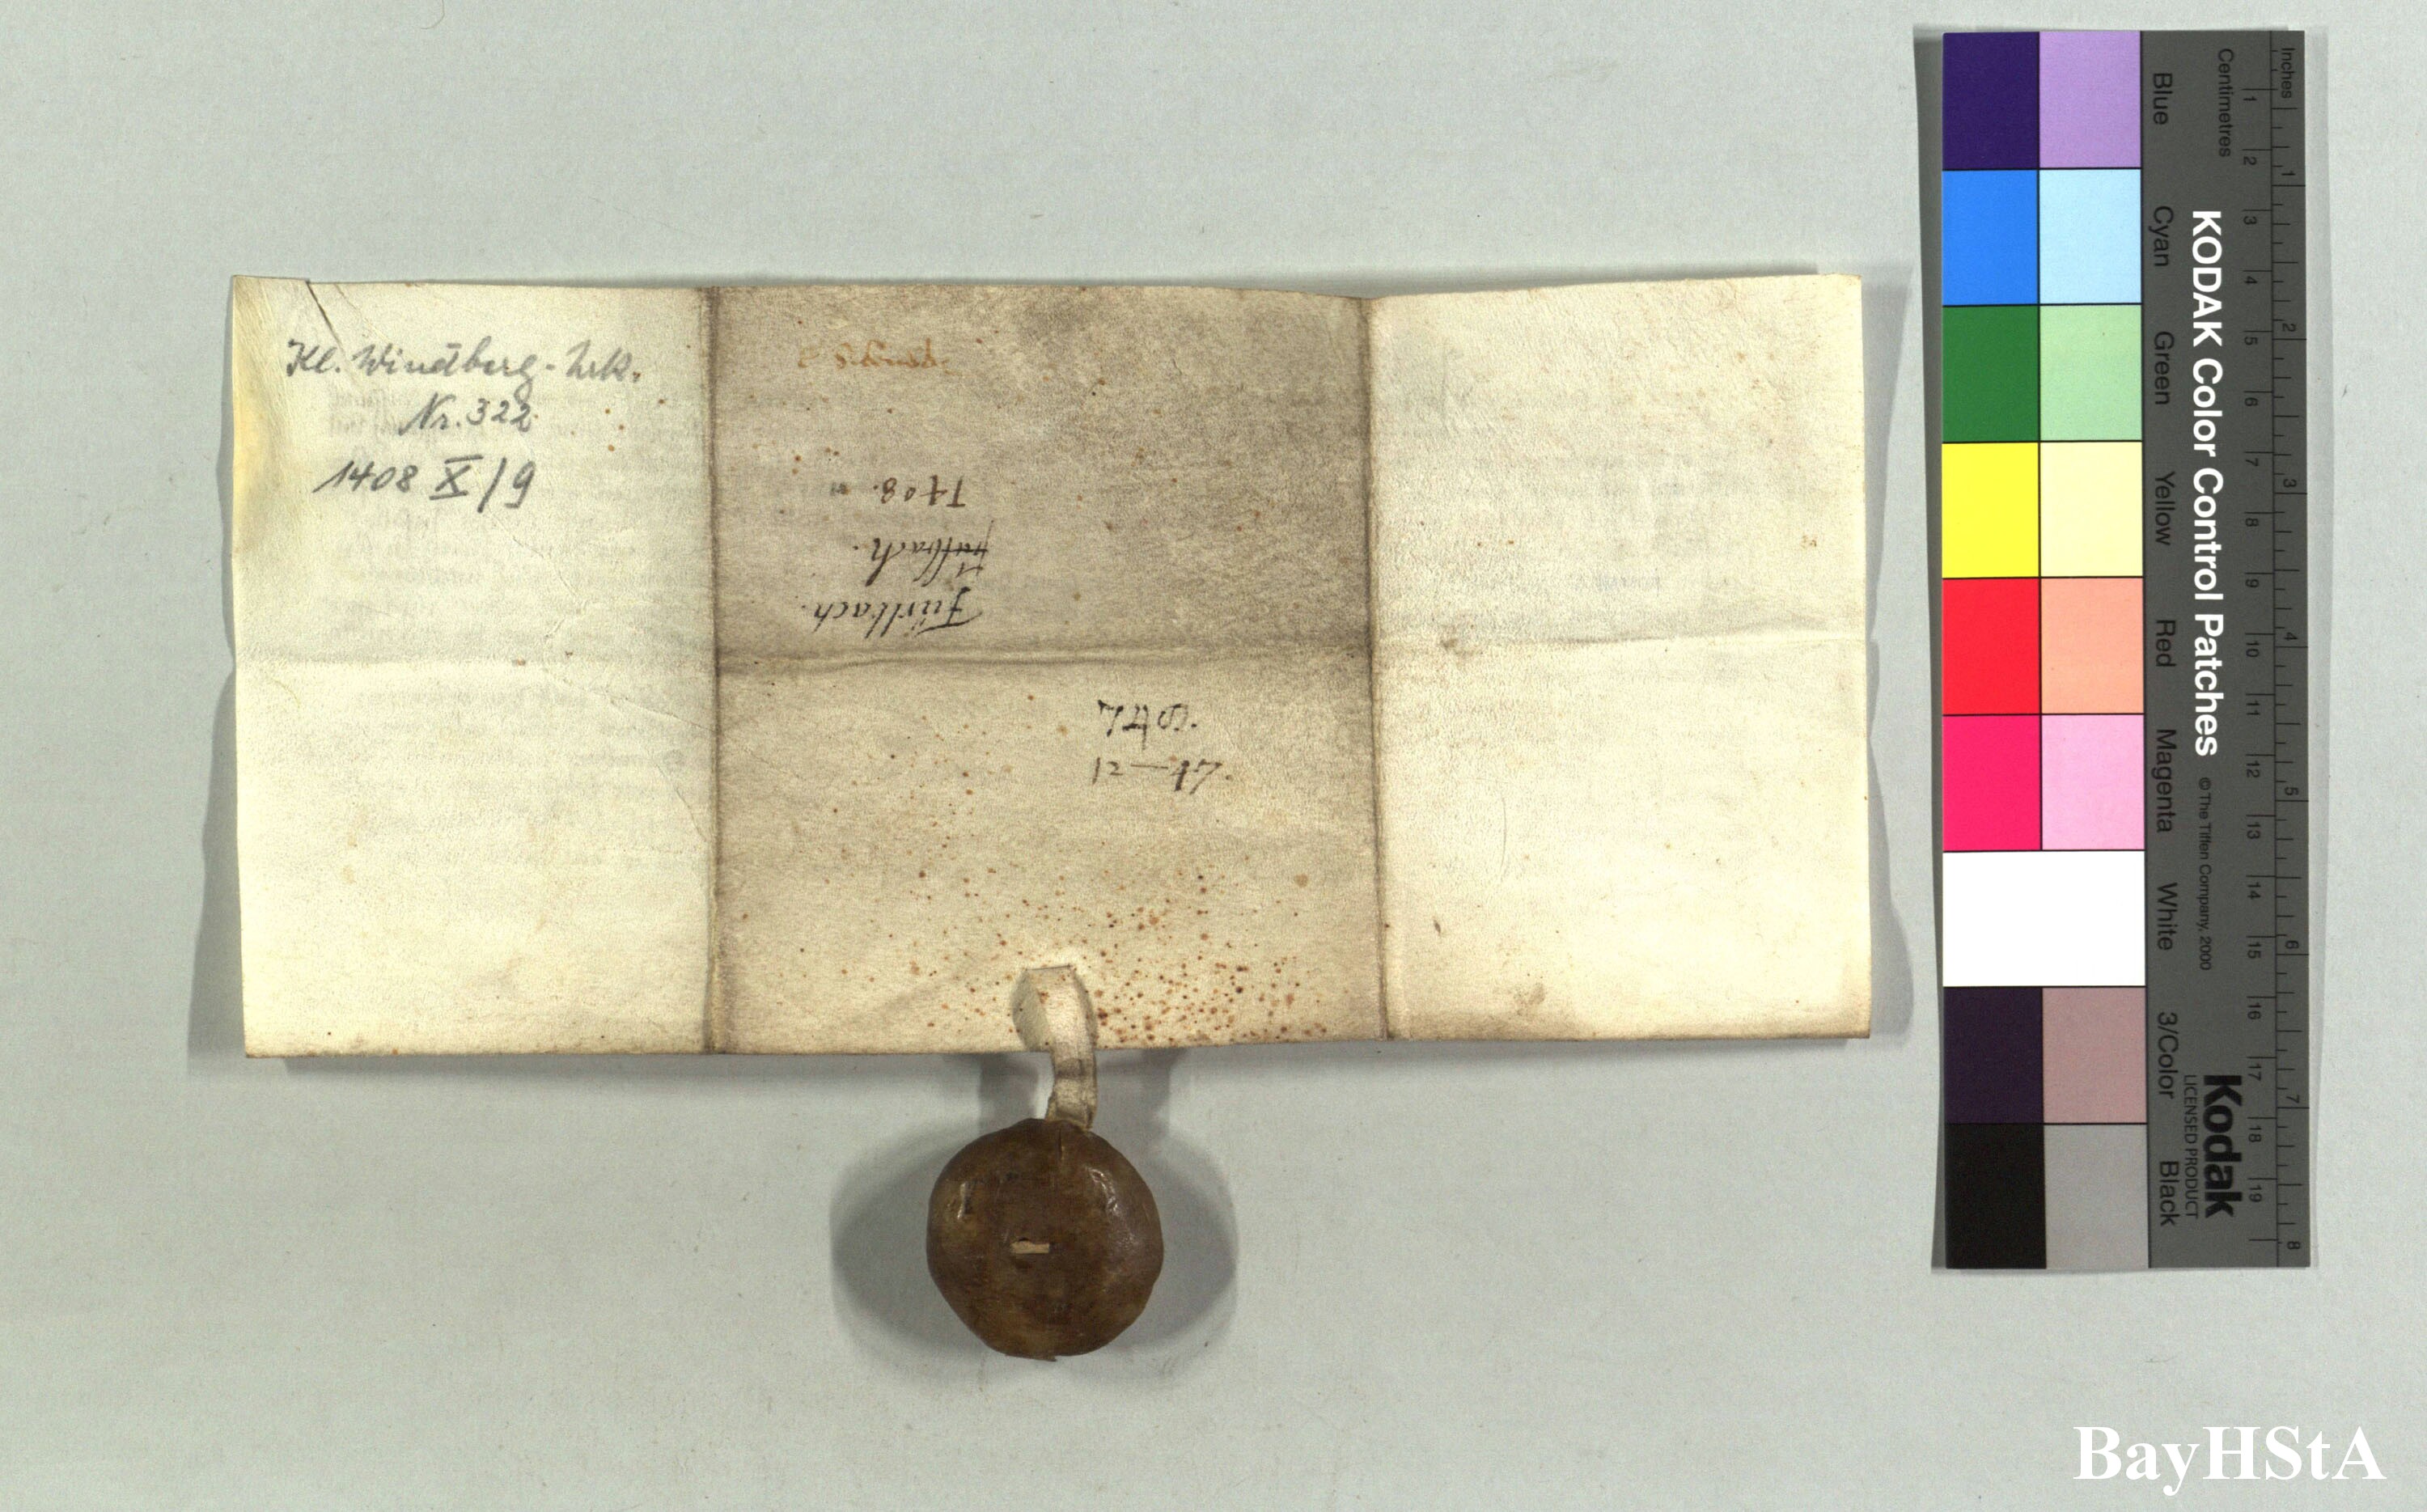 Kl. Windberg - Urk.
Nr. 322
1408 X/9
Fürlbach.
1408.
KODAK Color Control Patches
© The Tiffen Company, 2000
Kodak
LICENSED PRODUCT
Inches
1 2 3 4 5 6 7 8
Centimetres
1 2 3 4 5 6 7 8 9 10 11 12 13 14 15 16 17 18 19
Blue
Cyan
Green
Yellow
Red
Magenta
White
3/Color
Black
BayHStA